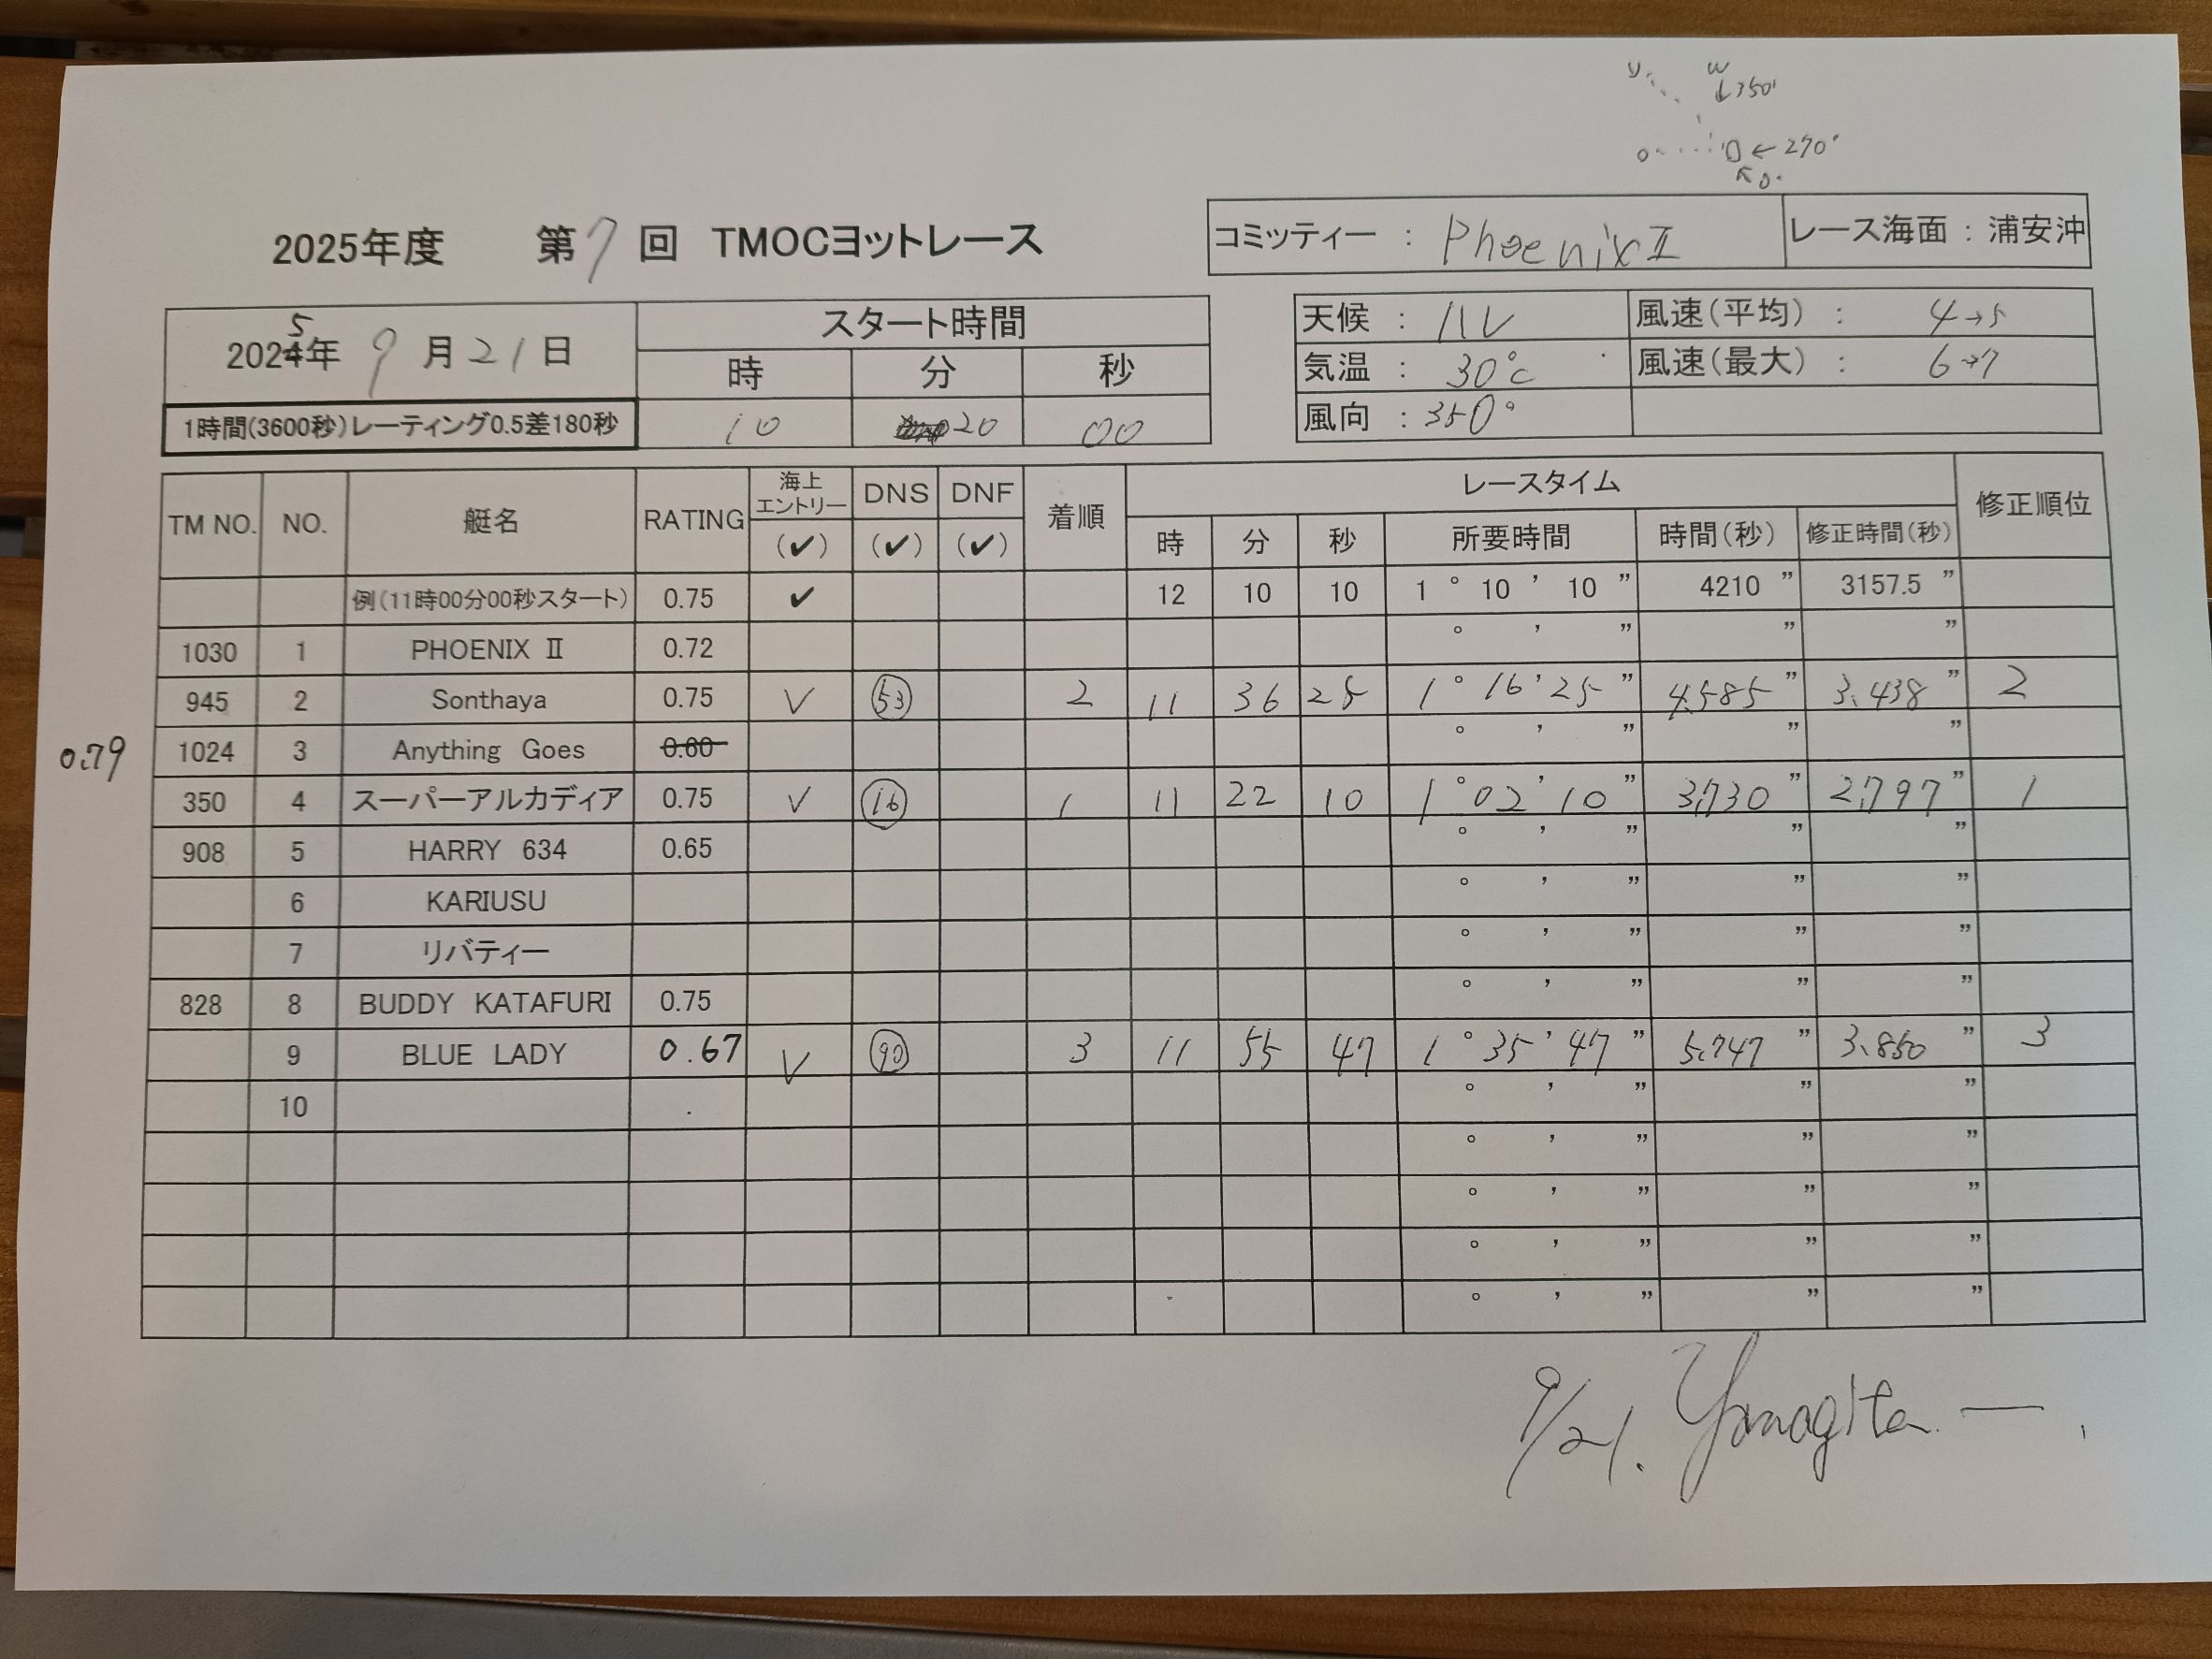 W
↓350°
0 ← 270°
↖0°
2025年度 第7回 TMOCヨットレース
コミッティー : Phoenix II レース海面 : 浦安沖
2024年 5 9月21日 スタート時間
時 分 秒
1時間(3600秒)レーティング0.5差180秒 10 20 00
天候 : ハレ 風速(平均) : 4→5
気温 : 30℃ 風速(最大) : 6→7
風向 : 350°
TM NO. NO. 艇名 RATING 海上エントリー (✔) DNS (✔) DNF (✔) 着順 レースタイム 修正順位
時 分 秒 所要時間 時間(秒) 修正時間(秒)
例(11時00分00秒スタート) 0.75 ✔ 12 10 10 1 ° 10 ’ 10 ” 4210 ” 3157.5 ”
1030 1 PHOENIX Ⅱ 0.72 ° ’ ” ” ”
945 2 Sonthaya 0.75 ✓ 53 2 11 36 25 1 ° 16 ’ 25 ” 4,585 ” 3,438 ” 2
0.79 1024 3 Anything Goes 0.80 ° ’ ” ” ”
350 4 スーパーアルカディア 0.75 ✓ 16 1 11 22 10 1 ° 02 ’ 10 ” 3,730 ” 2,797 ” 1
908 5 HARRY 634 0.65 ° ’ ” ” ”
6 KARIUSU ° ’ ” ” ”
7 リバティー ° ’ ” ” ”
828 8 BUDDY KATAFURI 0.75 ° ’ ” ” ”
9 BLUE LADY 0.67 ✓ 90 3 11 55 47 1 ° 35 ’ 47 ” 5,747 ” 3,850 ” 3
10 . ° ’ ” ” ”
° ’ ” ” ”
° ’ ” ” ”
° ’ ” ” ”
° ’ ” ” ”
9/21. Yanagita